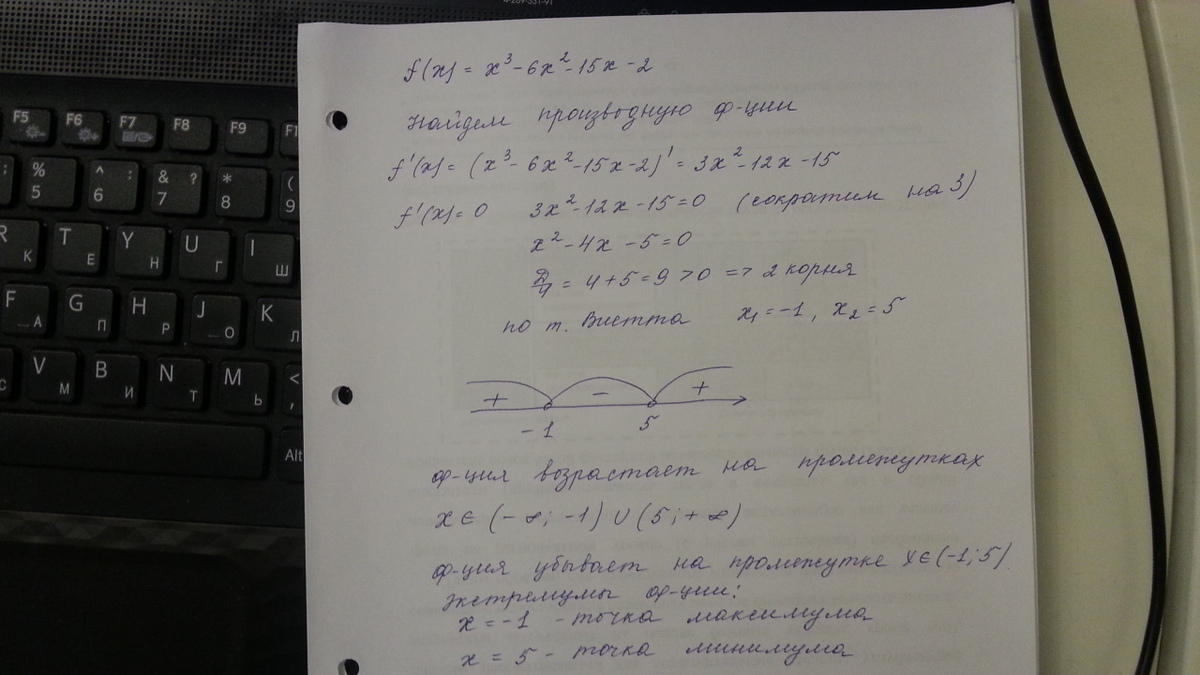 4-269-331-91
f(x) = x³ - 6x² - 15x - 2
Найдем производную ф-ции
f'(x) = (x³ - 6x² - 15x - 2)' = 3x² - 12x - 15
f'(x) = 0 3x² - 12x - 15 = 0 (сократим на 3)
x² - 4x - 5 = 0
D/4 = 4 + 5 = 9 > 0 => 2 корня
по т. Виетта x₁ = -1, x₂ = 5
+ - +
-1 5
ф-ция возрастает на промежутках
x ∈ (-∞; -1) ∪ (5; +∞)
ф-ция убывает на промежутке x ∈ (-1; 5).
Экстремумы ф-ции:
x = -1 - точка максимума
x = 5 - точка минимума
F5 F6 F7 F8 F9 F1
; % 5 ^ : 6 & ? 7 * 8 ( 9
R К T Е Y Н U Г I Ш
F А G П H Р J О K Л
с V М B И N Т M Ь < ,
Alt